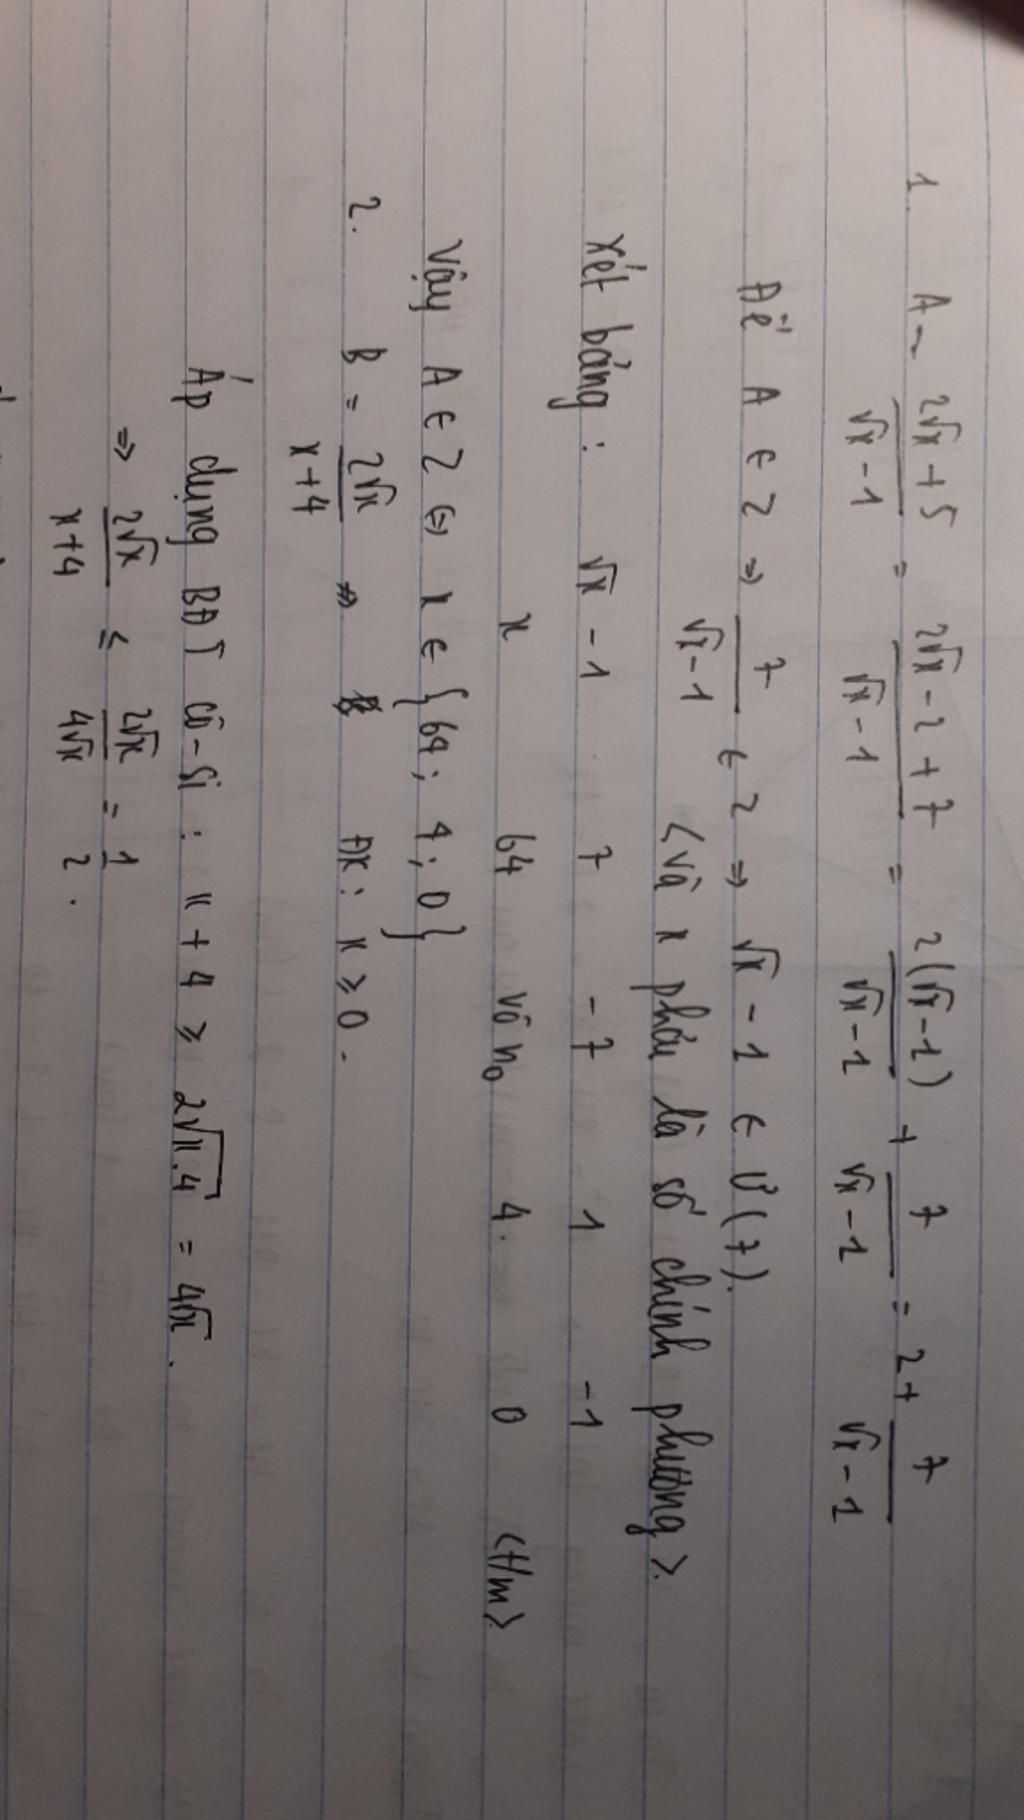 1. A = 2√x + 5 / √x - 1 = 2√x - 2 + 7 / √x - 1 = 2(√x - 1) / √x - 1 + 7 / √x - 1 = 2 + 7 / √x - 1
Để A ∈ Z ⇒ 7 / √x - 1 ∈ Z ⇒ √x - 1 ∈ Ư(7).
<và x phải là số chính phương>.
Xét bảng: √x - 1 7 -7 1 -1
x 64 vô n₀ 4. 0 <t/m>
Vậy A ∈ Z ⇔ x ∈ {64; 4; 0}
2. B = 2√x / x + 4 ⇒ ĐK: x ≥ 0.
Áp dụng BĐT Cô-si: x + 4 ≥ 2√x.4 = 4√x.
⇒ 2√x / x + 4 ≤ 2√x / 4√x = 1 / 2.